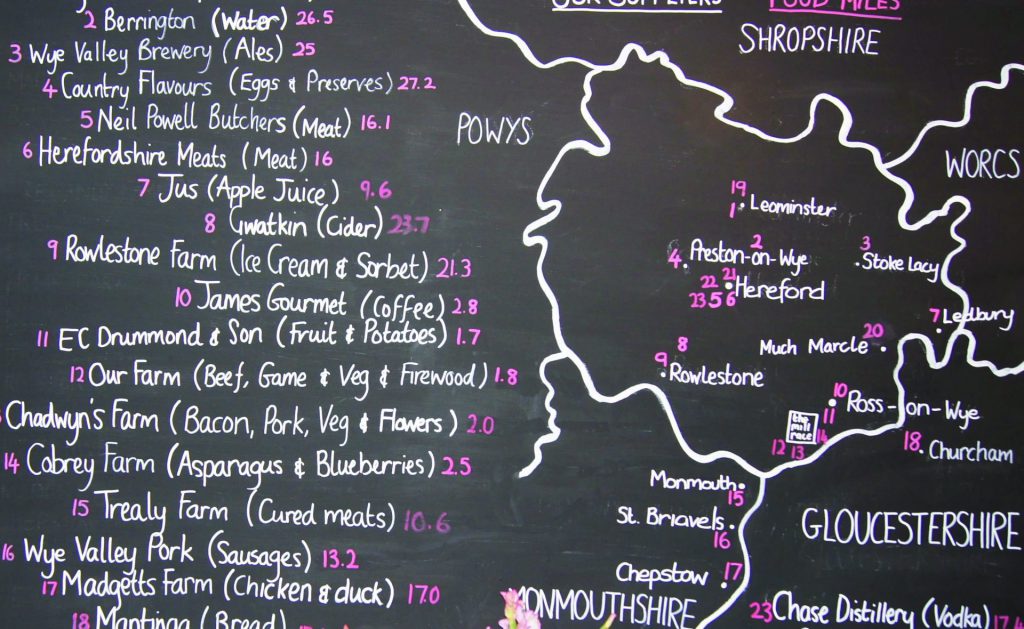 OUR SUPPLIERS FOOD MILES
2 Berrington (Water) 26.5
3 Wye Valley Brewery (Ales) 25
4 Country Flavours (Eggs & Preserves) 27.2
5 Neil Powell Butchers (Meat) 16.1
6 Herefordshire Meats (Meat) 16
7 Jus (Apple Juice) 9.6
8 Gwatkin (Cider) 23.7
9 Rowlestone Farm (Ice Cream & Sorbet) 21.3
10 James Gourmet (Coffee) 2.8
11 EC Drummond & Son (Fruit & Potatoes) 1.7
12 Our Farm (Beef, Game & Veg & Firewood) 1.8
Chadwyn's Farm (Bacon, Pork, Veg & Flowers) 2.0
14 Cobrey Farm (Asparagus & Blueberries) 2.5
15 Trealy Farm (Cured meats) 10.6
16 Wye Valley Pork (Sausages) 13.2
17 Madgetts Farm (Chicken & duck) 17.0
18 Mantinga (Bread)
SHROPSHIRE
POWYS
WORCS
19
1 Leominster
2
4 Preston-on-Wye
3
Stoke Lacy
22 21
23 5 6 Hereford
7 Ledbury
20
Much Marcle
8
9 Rowlestone
10
11 Ross-on-Wye
the mill race
12 13 14
18 Churcham
Monmouth
15
St. Briavels
16
GLOUCESTERSHIRE
Chepstow 17
MONMOUTHSHIRE
23 Chase Distillery (Vodka) 17.4